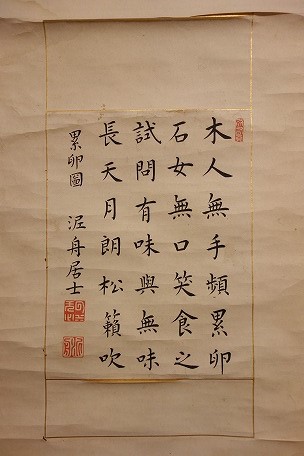 木人無手頻累卵
石女無口笑食之
試問有味與無味
長天月朗松籟吹
累卵圖 泥舟居士